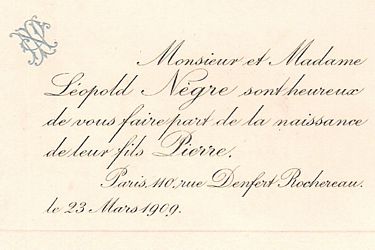 Monsieur et Madame
Léopold Nègre sont heureux
de vous faire part de la naissance
de leur fils Pierre.
Paris, 110, rue Denfert Rochereau.
le 23 Mars 1909.